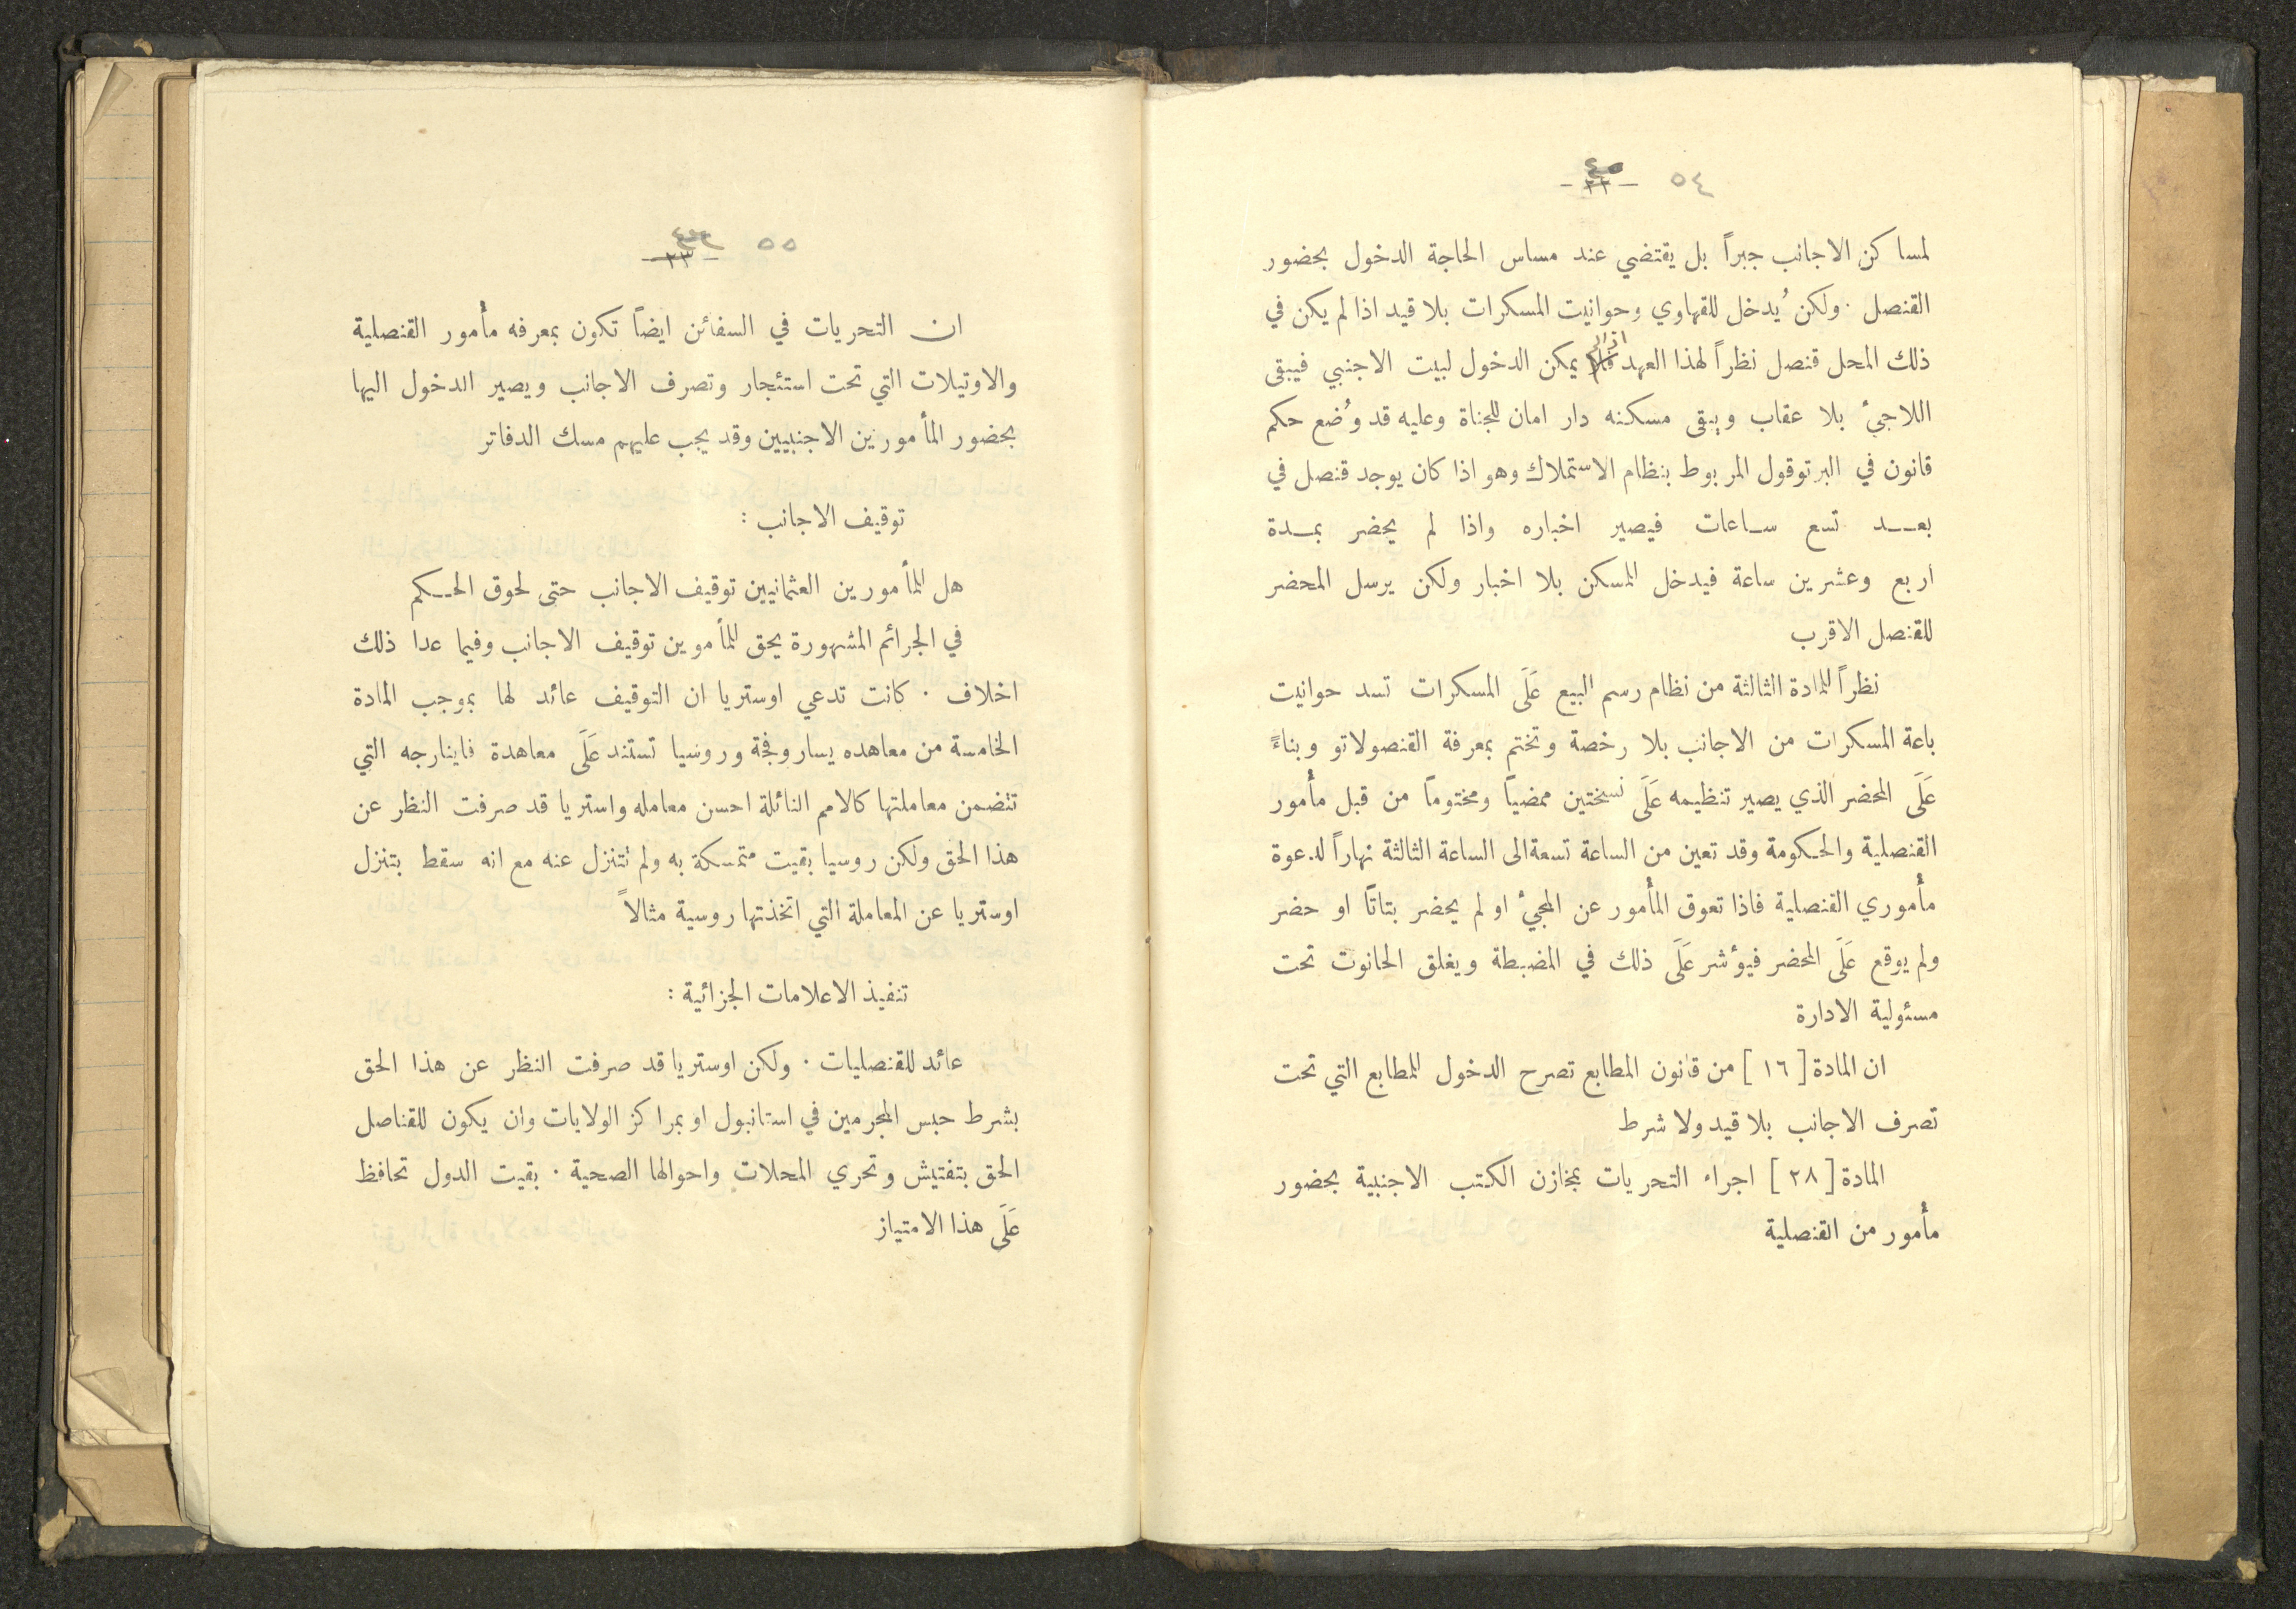 ٥٤
- ٢٢ -
لمساكن الاجانب جبراً بل يقتضي عند مساس الحاجة الدخول بحضور
القنصل . ولكن يُدخل للقهاوي وحوانيت المسكرات بلا قيد اذا لم يكن في
ذلك المحل قنصل نظراً لهذا العهد يمكن الدخول لبيت الاجنبي فيبقى
اللاجئ بلا عقاب ويبقى مسكنه دار امان للجناة وعليه قد وُضع حكم
قانون في البرتوقول المربوط بنظام الاستملاك وهو اذا كان يوجد قنصل في
بعــد تسع ســاعات فيصير اخباره واذا لم يحضر بمـدة
اربع وعشرين ساعة فيدخل المسكن بلا اخبار ولكن يرسل المحضر
للقنصل الاقرب
نظراً للمادة الثالثة من نظام رسم البيع عَلَى المسكرات تسد حوانيت
باعة المسكرات من الاجانب بلا رخصة وتختم بمعرفة القنصولاتو وبناءً
عَلَى المحضر الذي يصير تنظيمه عَلَى نسختين ممضياً ومختوماً من قبل مأمور
القنصلية والحكومة وقد تعين من الساعة تسعة الى الساعة الثالثة نهاراً لدعوة
مأموري القنصلية فاذا تعوق المأمور عن المجئ او لم يحضر بتاتاً او حضر
ولم يوقع عَلَى المحضر فيؤشر عَلَى ذلك في المضبطة ويغلق الحانوت تحت
مسئولية الادارة
ان المادة [ ١٦ ] من قانون المطابع تصرح الدخول للمطابع التي تحت
تصرف الاجانب بلا قيد ولا شرط
المادة [ ٢٨ ] اجراء التحريات بمخازن الكتب الاجنبية بحضور
مأمور من القنصلية
٥٥
- ٢٣ -
ان التحريات في السفائن ايضاً تكون بمعرفه مأمور القنصلية
والاوتيلات التي تحت استئجار وتصرف الاجانب ويصير الدخول اليها
بحضور المأمورين الاجنبيين وقد يجب عليهم مسك الدفاتر
توقيف الاجانب :
هل للمأمورين العثمانيين توقيف الاجانب حتى لحوق الحـكم
في الجرائم المشهورة يحق للمأموين توقيف الاجانب وفيما عدا ذلك
اخلاف . كانت تدعي اوستريا ان التوقيف عائد لها بموجب المادة
الخامسة من معاهده يساروفجة وروسيا تستند عَلَى معاهدة فاينارجه التي
تتضمن معاملتها كالامم النائلة احسن معامله واستريا قد صرفت النظر عن
هذا الحق ولكن روسيا بقيت متمسكة به ولم تتنزل عنه مع انه سقط بتنزل
اوستريا عن المعاملة التي اتخذتها روسية مثالاً
تنفيذ الاعلامات الجزائية :
عائد للقنصليات . ولكن اوستريا قد صرفت النظر عن هذا الحق
بشرط حبس المجرمين في استانبول او بمراكز الولايات وان يكون للقناصل
الحق بتفتيش وتحري المحلات واحوالها الصحية . بقيت الدول تحافظ
عَلَى هذا الامتياز